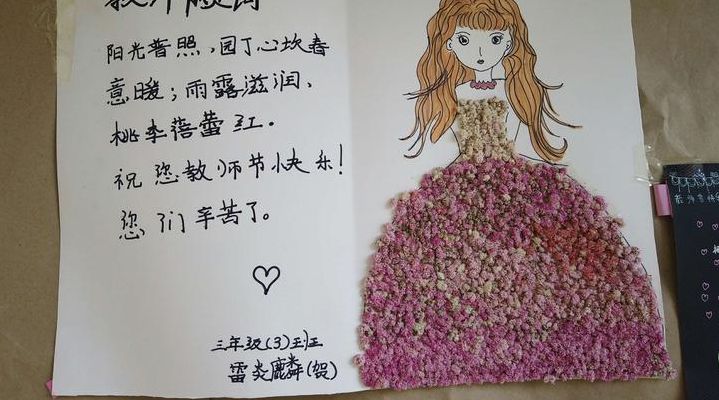 阳光普照,园丁心坎春
意暖;雨露滋润、
桃李蓓蕾红.
祝您教师节快乐!
您们辛苦了。
三年级(3)班
雷炎麟(贺)